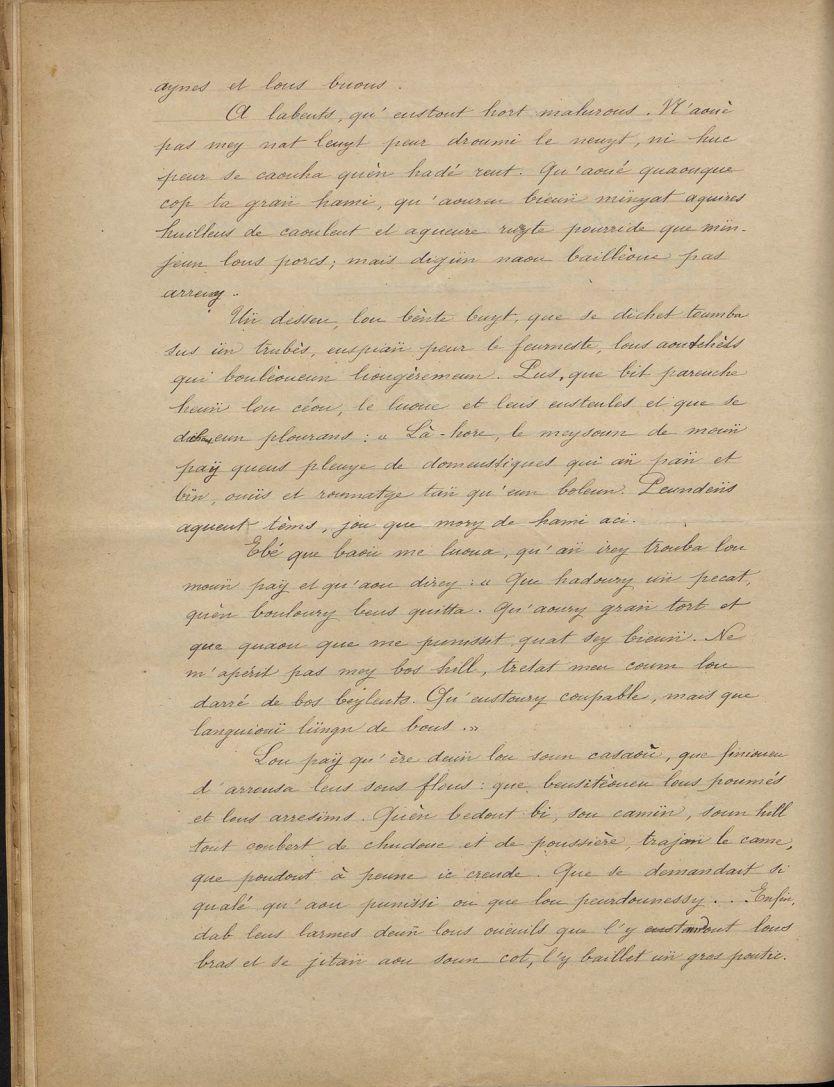 aynes et lous buous.
A labeuts, qu'eustout hort malurous. N'aouè
pas mey nat leuyt peur droumi le neuyt, ni huc
peur se caouha quèn hadé reut. Qu'aoué quaouque
cop ta grañ hami, qu'aoureu bieuñ minyat aqueres
huilleus de caouleut et aqueure ruyte pourride que min-
jeun lous porcs; mais digün naou baillèoue pas
arreuy.
Uñ desseu, lou bènte buyt, que se dichet toumba
sus ün trubès, euspiañ peur le feurneste, lous aoutchèts
qui boulèoueun liougèremeun. Pus, que bit pareuche
heuñ lou céou, le luoue et leus eusteules et que se
eun plourans : « Là-hore, le meysoun de mouñ
paÿ queus pleuye de domeustiques qui añ pañ et
bin, ouüs et roumatge tañ qu'eun boleun. Peundeñs
aqueut tèms, jou que mory de hami aci.
Ebé que baoü me luoua, qu'añ irey trouba lou
mouñ paÿ et qu'aou direy : « Que hadoury uñ pecat,
quèn bouloury beus quitta. Qu'aoury grañ tort et
que quaou que me punissit quat sey bieuñ. Ne
m'apérit pas mey bos hill, tretat meu coum lou
darré de bos beyleuts. Qu'eustoury coupable, mais que
languiouï lüngn de bous. »
Lou paÿ qu'ère deuñ lou soun casaoü, que finioueu
d'arreusa leus sous flous : que beusitèoueu leus poumés
et leus arresims. Quèn bedout bi, sou camiñ, soun hill
tout coubert de chudouc et de poussière, trajañ le came,
que poudout à peune ic creude. Que se demandait si
qualé qu'aou punissi ou que lou peurdounessy... Enfin,
dab leus larmes deuñ lous oueuils que l'y lous
bras et se jitañ aou soun cot, l'y baillet uñ gros poutic.